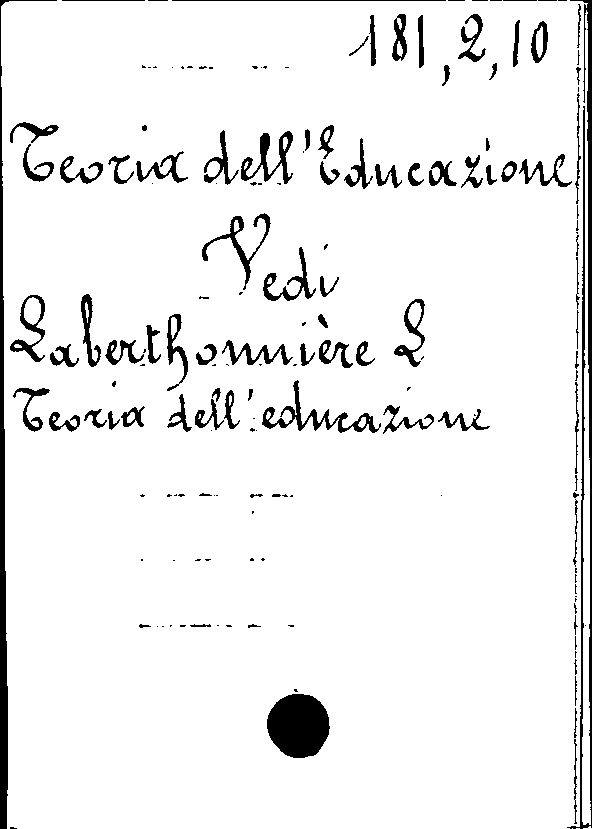 181,2,10
Teoria dell'Educazione
Vedi
Laberthonnière L
Teoria dell'educazione